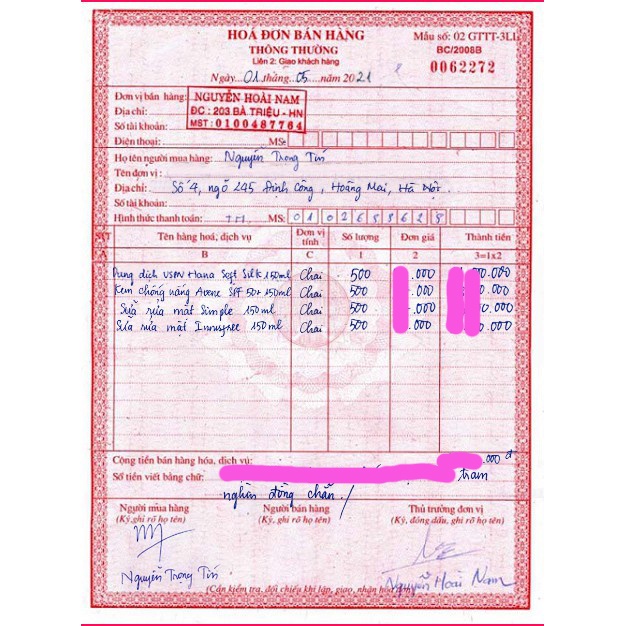 HOÁ ĐƠN BÁN HÀNG
THÔNG THƯỜNG
Liên 2: Giao khách hàng
Ngày 01 tháng 05 năm 2021
Mẫu số: 02 GTTT-3LL
BC/2008B
0062272
Đơn vị bán hàng: NGUYỄN HOÀI NAM
Địa chỉ: ĐC : 203 BÀ TRIỆU - HN
Số tài khoản: MST : 0100487764
Điện thoại: MS:
Họ tên người mua hàng: Nguyễn Trọng Tín
Tên đơn vị:
Địa chỉ: Số 4, ngõ 245 Định Công, Hoàng Mai, Hà Nội.
Số tài khoản:
Hình thức thanh toán: TM MS:
STT Tên hàng hoá, dịch vụ Đơn vị tính Số lượng Đơn giá Thành tiền
A B C 1 2 3=1x2
Dung dịch VSPN Hana Soft Silk 150ml Chai 500 .000 .000
Kem chống nắng Avene SPF 50+ 150ml Chai 500 .000 .000
Sữa rửa mặt Simple 150ml Chai 500 .000 .000
Sữa rửa mặt Innisfree 150ml Chai 500 .000 .000
Cộng tiền bán hàng hóa, dịch vụ: .000 đ
Số tiền viết bằng chữ: trăm
nghìn đồng chẵn./
Người mua hàng Người bán hàng Thủ trưởng đơn vị
(Ký, ghi rõ họ tên) (Ký, ghi rõ họ tên) (Ký, đóng dấu, ghi rõ họ tên)
Nguyễn Trọng Tín Nguyễn Hoài Nam
(Cần kiểm tra, đối chiếu khi lập, giao, nhận hóa